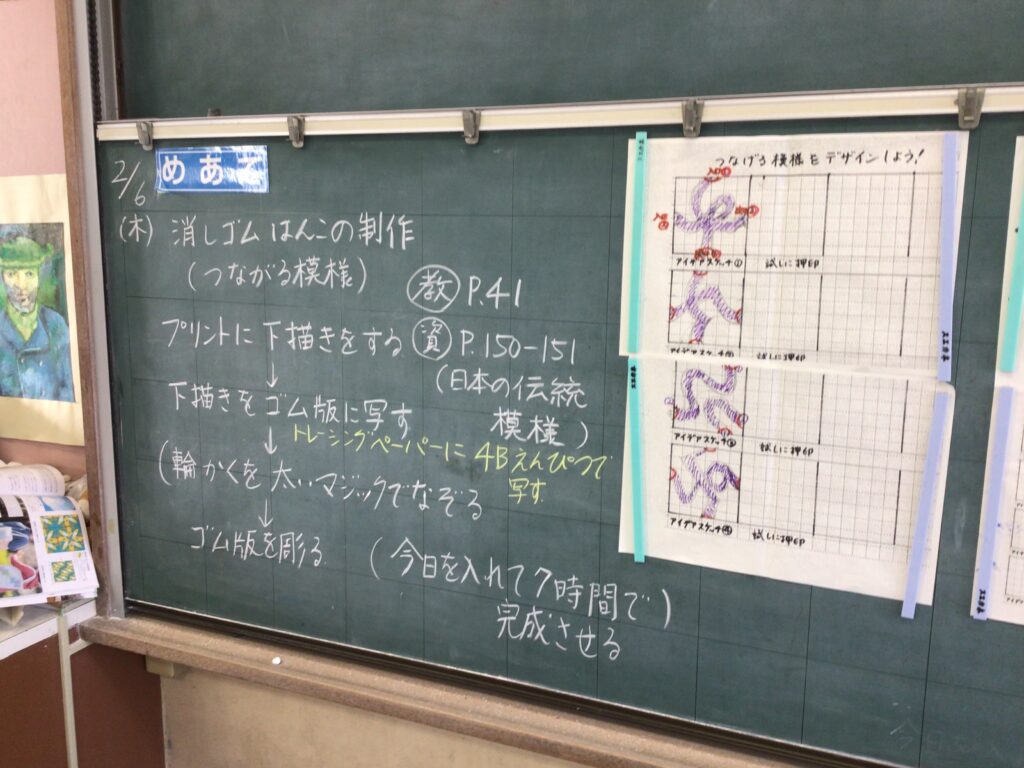 2/6
めあて
(木) 消しゴムはんこの制作
(つながる模様)
教 P.41
プリントに下描きをする
資 P.150-151
(日本の伝統
模様)
↓
下描きをゴム版に写す
↓
トレーシングペーパーに4Bえんぴつで
写す
(輪かくを太いマジックでなぞる
↓
ゴム版を彫る
(今日を入れて7時間で)
完成させる
つなげる模様をデザインしよう!
アイデアスケッチ① 試しに押印
アイデアスケッチ② 試しに押印
アイデアスケッチ③ 試しに押印
アイデアスケッチ④ 試しに押印
今日